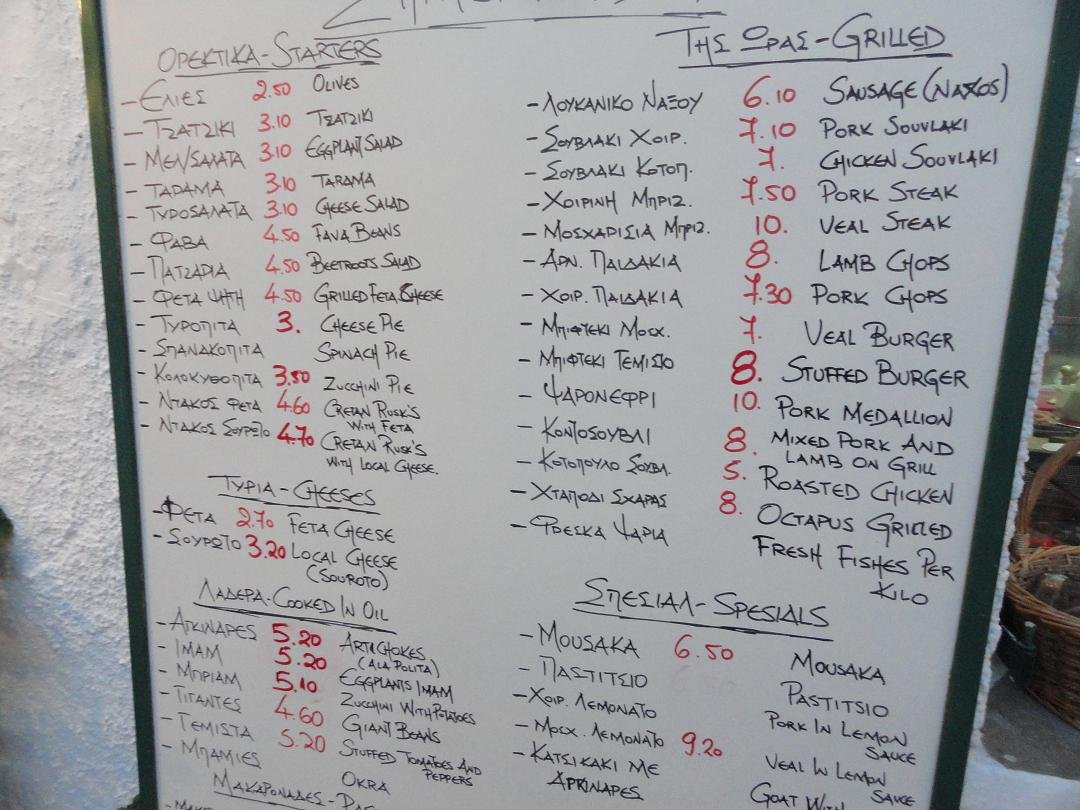 ΟΡΕΚΤΙΚΑ-STARTERS
-ΕΛΙΕΣ 2.50 OLIVES
-ΤΖΑΤΖΙΚΙ 3.10 TZATZIKI
-ΜΕΛ/ΣΑΛΑΤΑ 3.10 EGGPLANT/SALAD
-ΤΑΡΑΜΑ 3.10 TARAMA
-ΤΥΡΟSΑΛΑΤΑ 3.10 CHEESE SALAD
-ΦΑΒΑ 4.50 FAVA BEANS
-ΠΑΤΖΑΡΙΑ 4.50 BEETROOTS SALAD
-ΦΕΤΑ ΨΗΤΗ 4.50 GRILLED FETA CHEESE
-ΤΥΡΟΠΙΤΑ 3. CHEESE PIE
-ΣΠΑΝΑΚΟΠΙΤΑ SPINACH PIE
-ΚΟΛΟΚΥΘΟΠΙΤΑ 3.50 ZUCCHINI PIE
-ΝΤΑΚΟΣ ΦΕΤΑ 4.60 CRETAN RUSK'S
WITH FETA
-ΝΤΑΚΟΣ ΞΟΥΡΩΤΟ 4.70 CRETAN RUSK'S
WITH LOCAL CHEESE.
ΤΥΡΙΑ-CHEESES
-ΦΕΤΑ 2.70 FETA CHEESE
-ΞΟΥΡΩΤΟ 3.20 LOCAL CHEESE
(SOUROTO)
ΛΑΔΕΡΑ-COOKED IN OIL
-ΑΓΚΙΝΑΡΕΣ 5.20 ARTICHOKES
(ALA POLITA)
-ΙΜΑΜ 5.20 EGGPLANTS IMAM
-ΜΠΡΙΑΜ 5.10 ZUCCHINI WITH POTATOES
-ΓΙΓΑΝΤΕΣ 4.60 GIANT BEANS
-ΤΕΜΙΣΤΑ 5.20 STUFFED TOMATOES AND
PEPPERS
-ΜΠΑΜΙΕΣ OKRA
ΤΗΣ ΩΡΑΣ-GRILLED
-ΛΟΥΚΑΝΙΚΟ ΝΑΞΟΥ 6.10 SAUSAGE (NAXOS)
-ΣΟΥΒΛΑΚΙ ΧΟΙΡ. 7.10 PORK SOUVLAKI
-ΣΟΥΒΛΑΚΙ ΚΟΤΟΠ. 7. CHICKEN SOUVLAKI
-ΧΟΙΡΙΝΗ ΜΠΡΙΖ. 7.50 PORK STEAK
-ΜΟΣΧΑΡΙΣΙΑ ΜΠΡΙΖ. 10. VEAL STEAK
-ΑΡΝ. ΠΑΙΔΑΚΙΑ 8. LAMB CHOPS
-ΧΟΙΡ. ΠΑΙΔΑΚΙΑ 7.30 PORK CHOPS
-ΜΠΙΦΤΕΚΙ ΜΟΣΧ. 7. VEAL BURGER
-ΜΠΙΦΤΕΚΙ ΓΕΜΙΣΤΟ 8. STUFFED BURGER
-ΨΑΡΟΝΕΦΡΙ 10. PORK MEDALLION
-ΚΟΝΤΟSΟΥΒΛΙ 8. MIXED PORK AND
LAMB ON GRILL
-ΚΟΤΟΠΟΥΛΟ ΣΟΥΒΛ. 5. ROASTED CHICKEN
-ΧΤΑΠΟΔΙ ΣΧΑΡΑΣ 8. OCTAPUS GRILLED
-ΦΡΕΣΚΑ ΨΑΡΙΑ FRESH FISHES PER
KILO
ΣΠΕΣΙΑΛ-SPESIALS
-ΜΟUSΑΚΑ 6.50 MOUSAKA
-ΠΑΣΤΙΤΣΙΟ PASTITSIO
-ΧΟΙΡ. ΛΕΜΟΝΑΤΟ PORK IN LEMON
SAUCE
-ΜΟΣΧ. ΛΕΜΟΝΑΤΟ 9.20 VEAL IN LEMON
SAUCE
-ΚΑΤΣΙΚΑΚΙ ΜΕ GOAT WITH
ΑΓΚΙΝΑΡΕΣ